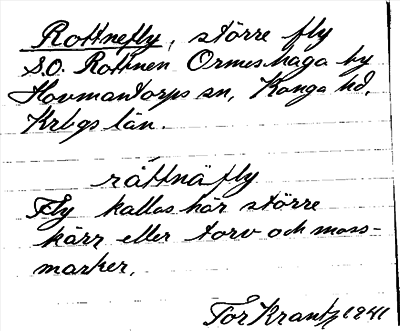 Rottnefly, större fly
S.O. Rottnen Ormeshaga by
Hovmantorps sn, Konga hd,
Krbgs län.
råttnäfly
Fly kallas här större
kärr eller torv och moss-
marker.
Tor Krantz 1941